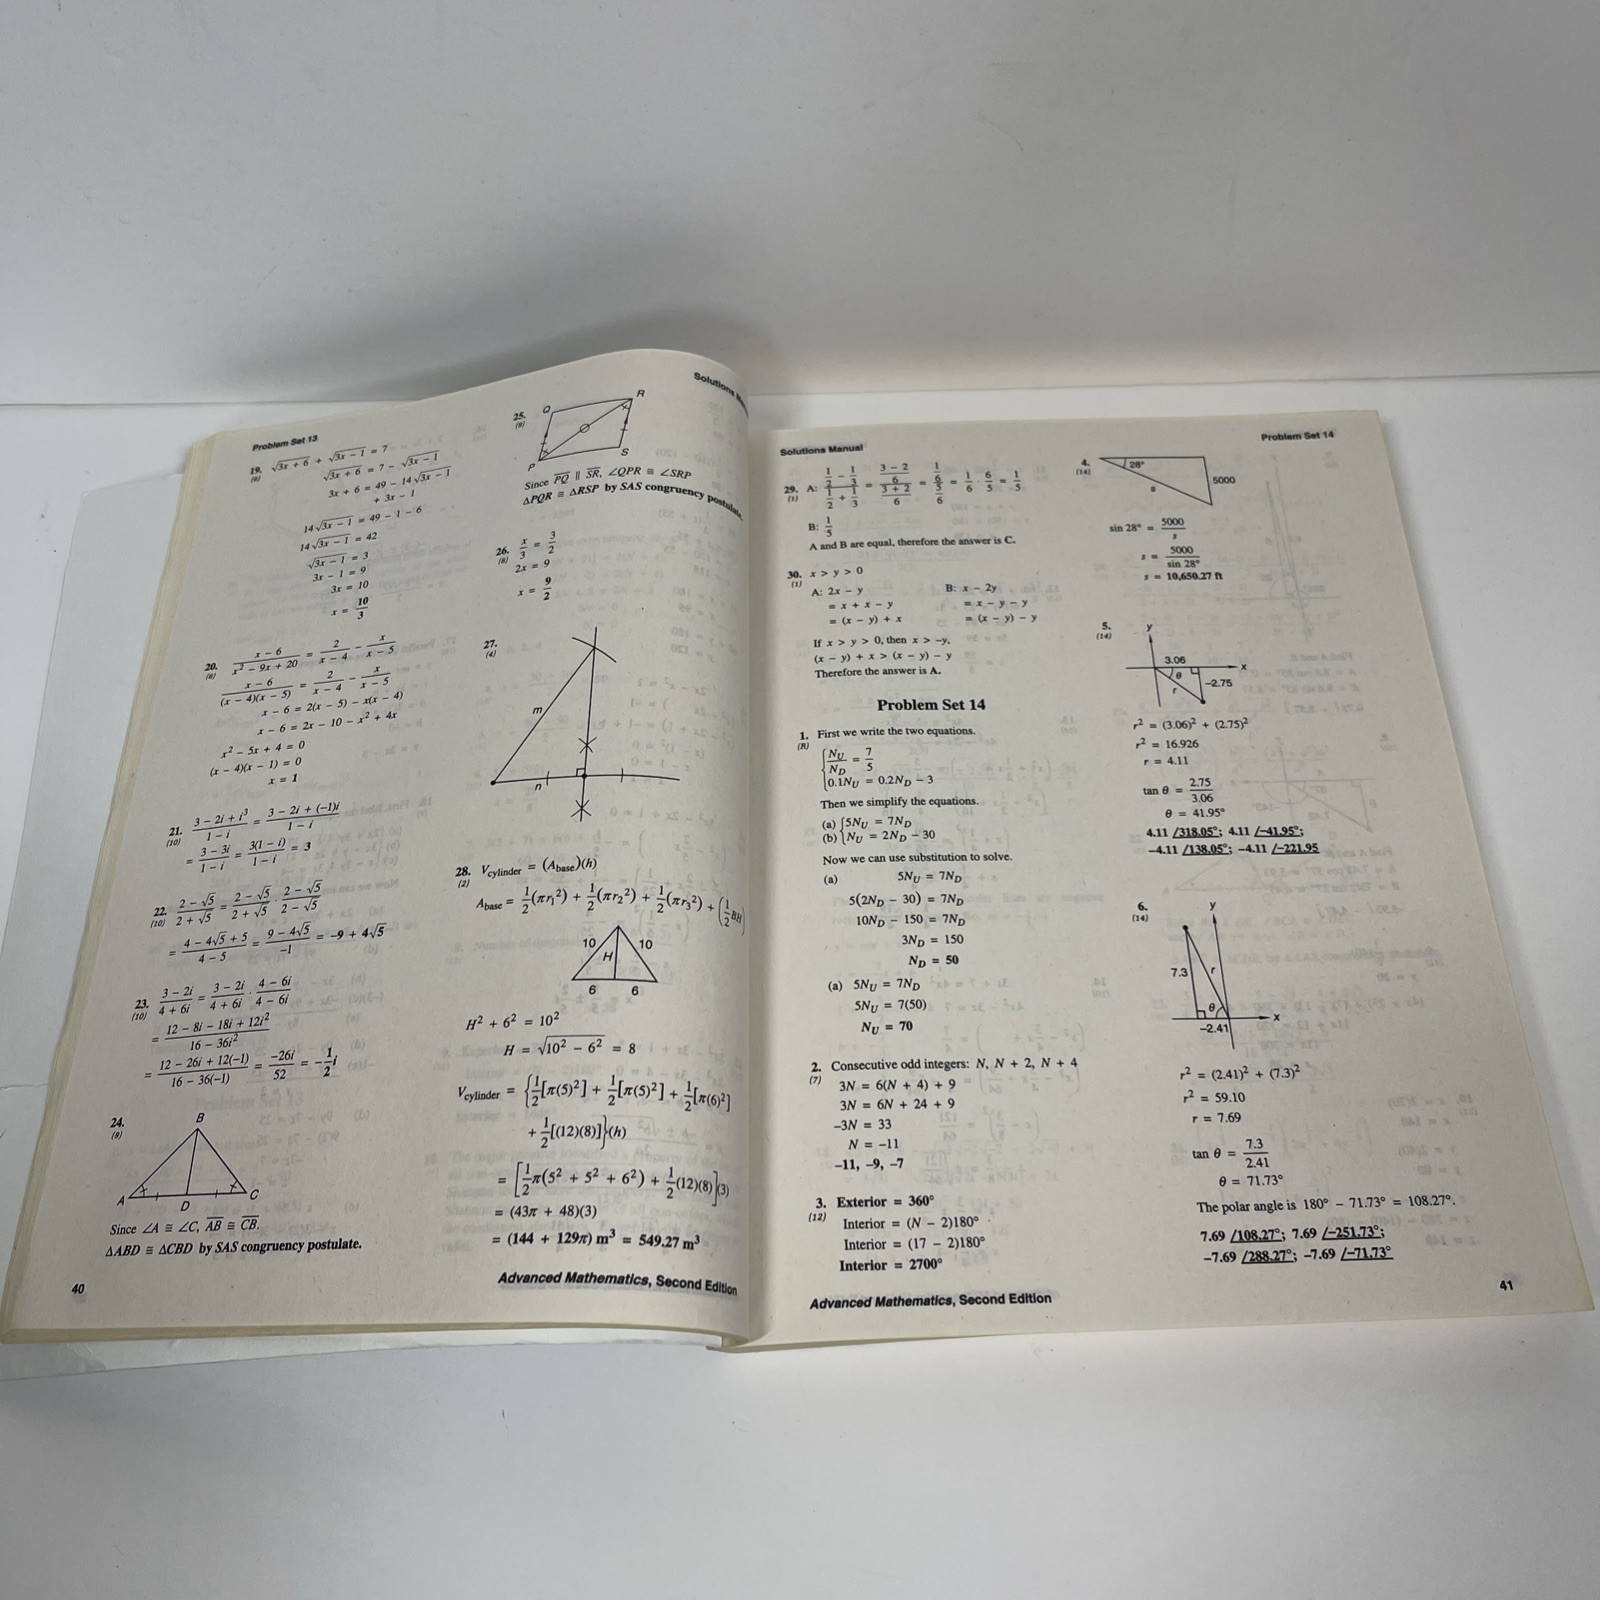 Problem Set 13
19.
(8)
√3x + 6 + √3x − 1 = 7
√3x + 6 = 7 − √3x − 1
3x + 6 = 49 − 14√3x − 1
+ 3x − 1
14√3x − 1 = 49 − 1 − 6
14√3x − 1 = 42
√3x − 1 = 3
3x − 1 = 9
3x = 10
x = 10/3
20.
(8)
x − 6 / x² − 9x + 20 = 2 / x − 4 − x / x − 5
x − 6 / (x − 4)(x − 5) = 2 / x − 4 − x / x − 5
x − 6 = 2(x − 5) − x(x − 4)
x − 6 = 2x − 10 − x² + 4x
x² − 5x + 4 = 0
(x − 4)(x − 1) = 0
x = 1
21.
(10)
3 − 2i + i³ / 1 − i = 3 − 2i + (−1)i / 1 − i
= 3 − 3i / 1 − i = 3(1 − i) / 1 − i = 3
22.
(10)
2 − √5 / 2 + √5 = 2 − √5 / 2 + √5 · 2 − √5 / 2 − √5
= 4 − 4√5 + 5 / 4 − 5 = 9 − 4√5 / −1 = −9 + 4√5
23.
(10)
3 − 2i / 4 + 6i = 3 − 2i / 4 + 6i · 4 − 6i / 4 − 6i
= 12 − 8i − 18i + 12i² / 16 − 36i²
= 12 − 26i + 12(−1) / 16 − 36(−1) = −26i / 52 = −1/2 i
24.
(9)
B
A
D
C
Since ∠A ≅ ∠C, AB ≅ CB.
△ABD ≅ △CBD by SAS congruency postulate.
40
Solutions
25.
(9)
Q
R
P
S
Since PQ ∥ SR, ∠QPR ≅ ∠SRP
△PQR ≅ △RSP by SAS congruency postulate.
26.
(8)
x/3 = 3/2
2x = 9
x = 9/2
27.
(4)
m
n
28.
(2)
Vcylinder = (Abase)(h)
Abase = 1/2(πr₁²) + 1/2(πr₂²) + 1/2(πr₃²) + (1/2 BH)
10
10
H
6
6
H² + 6² = 10²
H = √10² − 6² = 8
Vcylinder = {1/2[π(5)²] + 1/2[π(5)²] + 1/2[π(6)²]
+ 1/2[(12)(8)]}(h)
= [1/2π(5² + 5² + 6²) + 1/2(12)(8)](3)
= (43π + 48)(3)
= (144 + 129π) m³ = 549.27 m³
Advanced Mathematics, Second Edition
Solutions Manual
Problem Set 14
29.
(1)
A: 1/2 − 1/3 / 1/2 + 1/3 = 3 − 2/6 / 3 + 2/6 = 1/6 / 5/6 = 1/6 · 6/5 = 1/5
B: 1/5
A and B are equal, therefore the answer is C.
30.
(1)
x > y > 0
A: 2x − y
= x + x − y
= (x − y) + x
B: x − 2y
= x − y − y
= (x − y) − y
If x > y > 0, then x > −y,
(x − y) + x > (x − y) − y
Therefore the answer is A.
Problem Set 14
1.
(R)
First we write the two equations.
NU/ND = 7/5
0.1NU = 0.2ND − 3
Then we simplify the equations.
(a) 5NU = 7ND
(b) NU = 2ND − 30
Now we can use substitution to solve.
(a) 5NU = 7ND
5(2ND − 30) = 7ND
10ND − 150 = 7ND
3ND = 150
ND = 50
(a) 5NU = 7ND
5NU = 7(50)
NU = 70
2.
(7)
Consecutive odd integers: N, N + 2, N + 4
3N = 6(N + 4) + 9
3N = 6N + 24 + 9
−3N = 33
N = −11
−11, −9, −7
3.
(12)
Exterior = 360°
Interior = (N − 2)180°
Interior = (17 − 2)180°
Interior = 2700°
Advanced Mathematics, Second Edition
4.
(14)
28°
5000
s
sin 28° = 5000/s
s = 5000/sin 28°
s = 10,650.27 ft
5.
(14)
y
3.06
x
θ
r
−2.75
r² = (3.06)² + (2.75)²
r² = 16.926
r = 4.11
tan θ = 2.75/3.06
θ = 41.95°
4.11 /318.05°; 4.11 /−41.95°;
−4.11 /138.05°; −4.11 /−221.95
6.
(14)
y
7.3
r
θ
x
−2.41
r² = (2.41)² + (7.3)²
r² = 59.10
r = 7.69
tan θ = 7.3/2.41
θ = 71.73°
The polar angle is 180° − 71.73° = 108.27°.
7.69 /108.27°; 7.69 /−251.73°;
−7.69 /288.27°; −7.69 /−71.73°
41